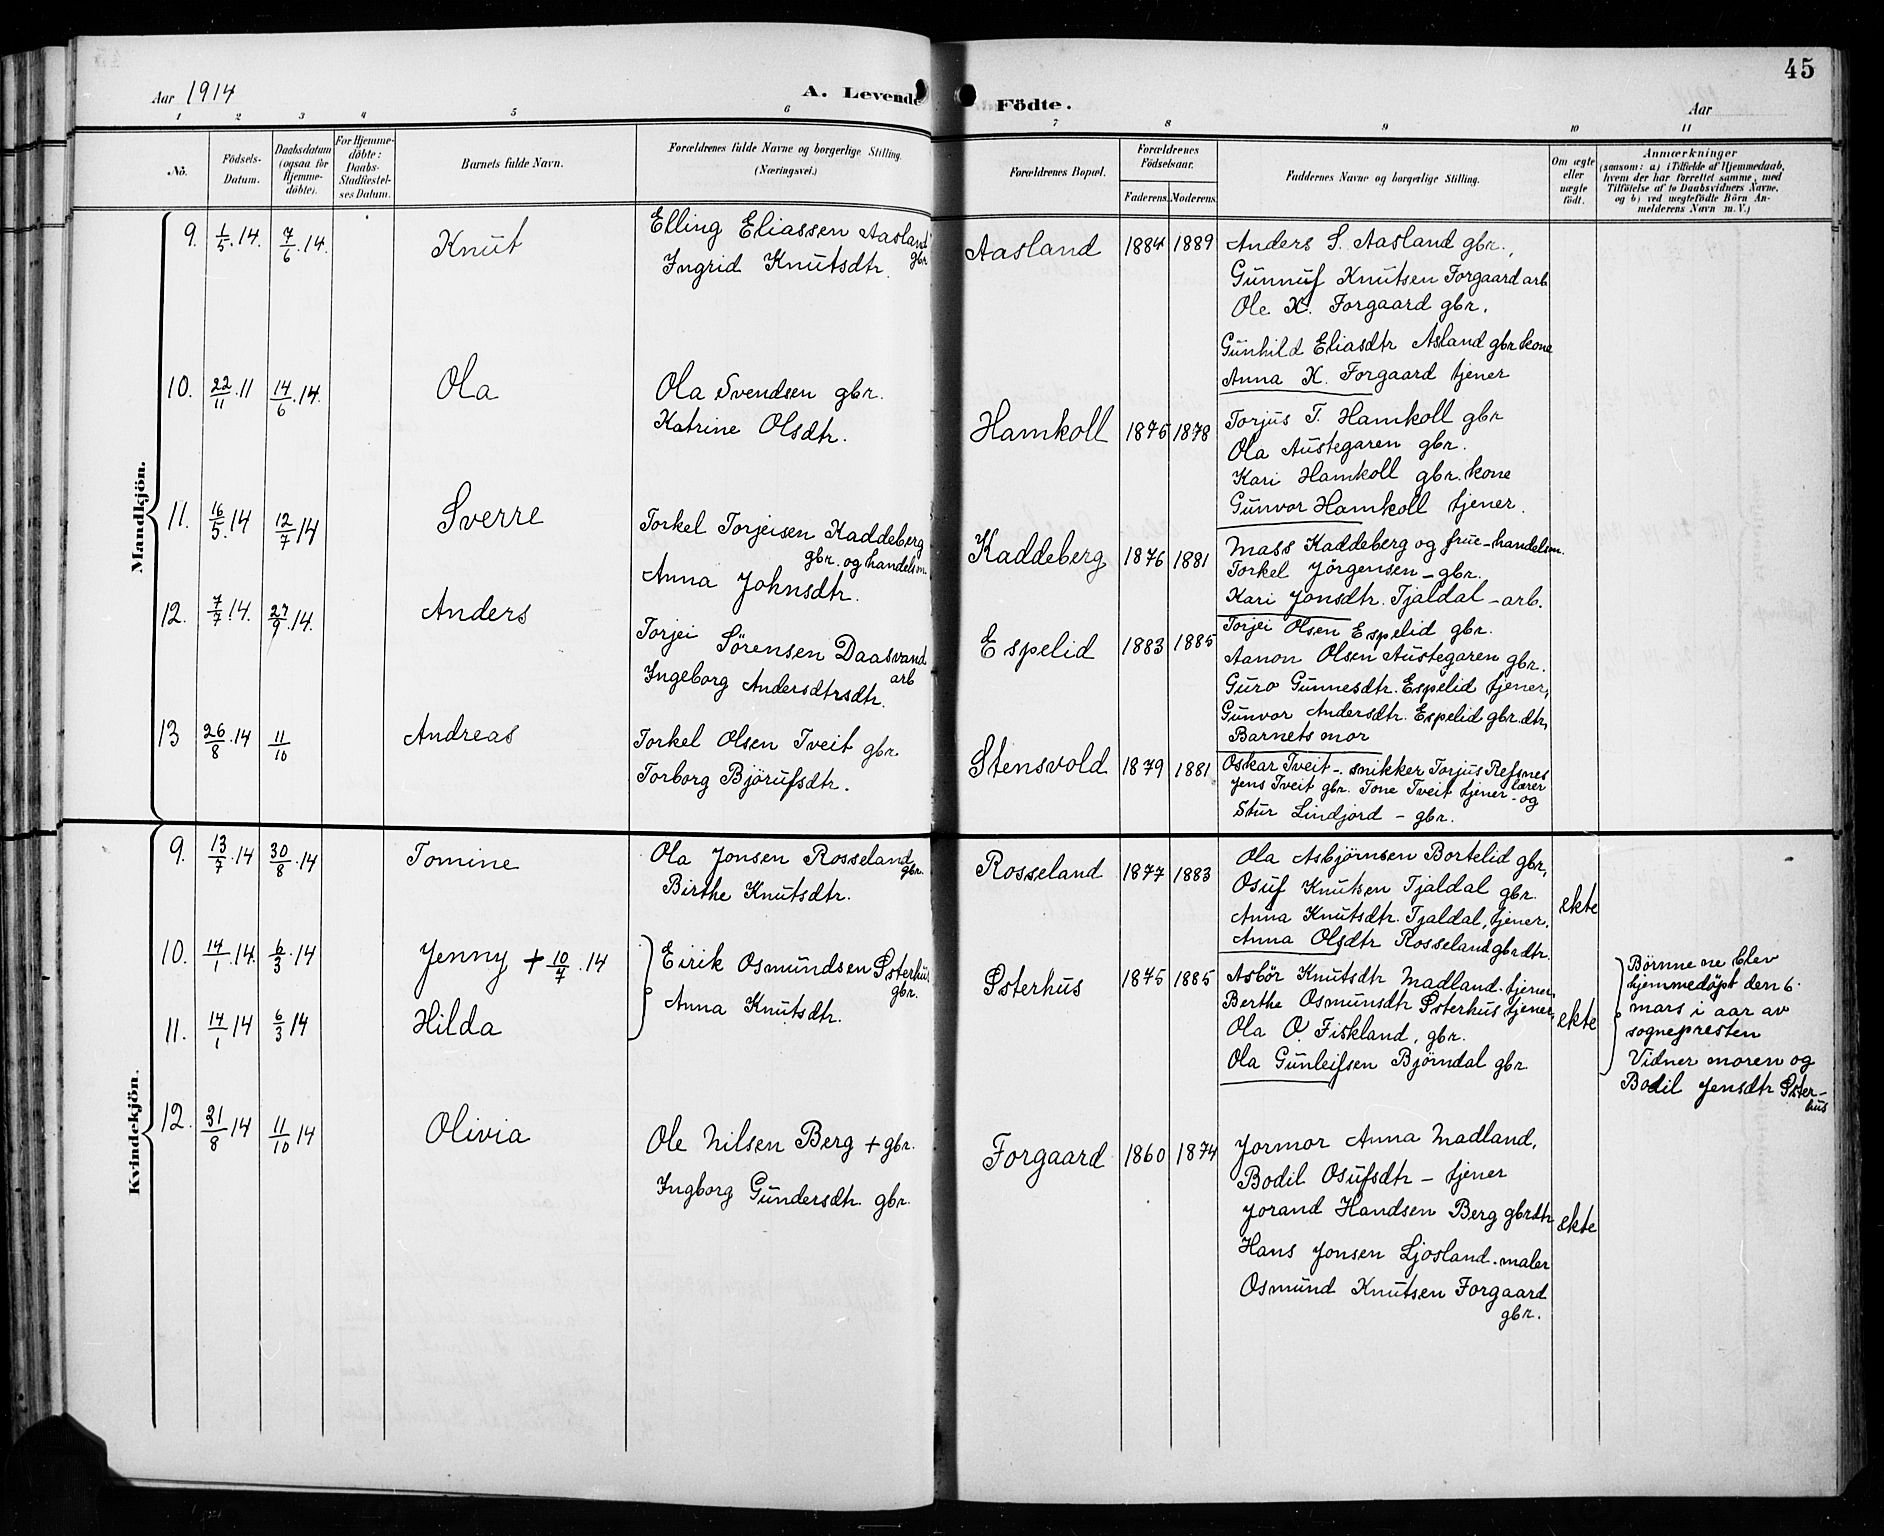 45
Aar 1914 A. Levende Födte. Aar
1 2 3 4 5 6 7 8 9 10 11
No.
Födsels-
Datum.
Daabsdatum
(ogsaa for
Hjemme-
döbte).
For Hjemme-
döbte:
Daabs-
Stadfæstel-
ses Datum.
Barnets fulde Navn.
Forældrenes fulde Navne og borgerlige Stilling.
(Næringsvei.)
Forældrenes Bopæl.
Forældrenes
Födselsaar.
Faderens. Moderens.
Faddernes Navne og borgerlige Stilling.
Om ægte
eller
uægte
födt.
Anmærkninger
(saasom: a) i Tilfælde af Hjemmedaab,
hvem der har forrettet samme, med
Tilföielse af to Daabsvidners Navne,
og b) ved uægtefödte Börn An-
melderens Navn m. V.)
Mandkjön.
9. 1/5.14. 7/6.14. Knut
Elling Eliassen Aasland
gbr
Ingrid Knutsdtr.
Aasland 1884 1889
Anders S. Aasland gbr.,
Gunnuf Knutsen Forgaard arb
Ole K. Forgaard gbr.
Gunhild Eliasdtr Asland gbr kone
Anna K. Forgaard tjener
10. 22/11.11 14/6.14. Ola
Ola Svendsen gbr.
Katrine Olsdtr.
Hamkoll 1875 1878
Torjus T. Hamkoll gbr
Ola Austegaren gbr.
Kari Hamkoll gbr. kone
Gunvor Hamkoll tjener.
11. 16/5.14 12/7 14 Sverre
Torkel Torjeisen Kaddeberg
gbr. og handelsm.
Anna Johnsdtr.
Kaddeberg 1876 1881
Mass Kaddeberg og frue - handelsm.
Torkel Jörgensen - gbr.
Kari Jonsdtr. Tjaldal - arb.
12. 7/7.14. 27/9.14. Anders
Torjei Sørensen Daasvand
arb
Ingeborg Andersdtrsdtr.
Espelid 1883 1885
Torjei Olsen Espelid gbr.
Aanon Olsen Austegaren gbr.
Guro Gunnesdtr. Espelid tjener,
Gunvor Andersdtr. Espelid gbr. dtr,
Barnets mor
13 26/8.14 11/10 Andreas
Torkel Olsen Tveit gbr
Torborg Björufsdtr.
Stensvold 1879 1881
Oskar Tveit - snikker Torjus Refsnes
lærer
Jens Tveit gbr. Tone Tveit tjener - og
Stur Lindjord - gbr.
Kvindekjön.
9. 13/7.14 30/8.14 Tomine
Ola Jonsen Rosseland
gbr.
Birthe Knutsdtr.
Rosseland 1877 1883
Ola Asbjørnsen Bortelid gbr,
Osuf Knutsen Tjaldal gbr.
Anna Knutsdtr. Tjaldal, tjener.
Anna Olsdtr Rosseland gbr dtr.
ekte
10. 14/1.14. 6/3.14 Jenny + 10/7.14
11. 14/1 14 6/3 14 Hilda
Eirik Osmundsen Østerhus
gbr.
Anna Knutsdtr.
Østerhus 1875 1885
Asbör Knutsdtr Madland tjener,
Berthe Osmunsdtr Østerhus tjener,
Ola O. Fiskland, gbr.
Ola Gunleifsen Bjørndal gbr
ekte
Børnene blev
hjemmedøpt den 6.
mars i aar av
sognepresten
Vidner moren og
Bodil Jensdtr Øster-
hus
12. 31/8 14 11/10 14 Olivia
Ole Nilsen Berg + gbr.
Ingborg Gundersdtr. gbr.
Forgaard 1860 1874
Jormor Anna Madland,
Bodil Osufsdtr - tjener
Jorand Handsen Berg gbrdtr
Hans Jonsen Ljosland - maler
Osmund Knutsen Forgaard
gbr.
ekte